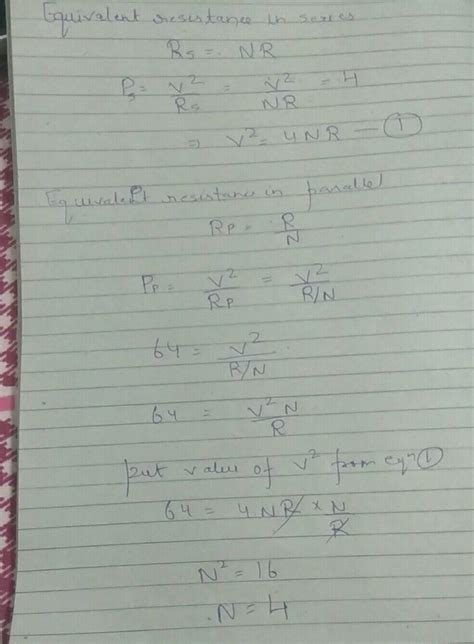 Equivalent resistance in series
Rs = NR
Ps = V²/Rs = V²/NR = 4
⇒ V² = 4NR — ①
Equivalent resistance in parallel
Rp = R/N
Pp = V²/Rp = V²/R/N
64 = V²/R/N
64 = V²N/R
put value of V² from eqn ①
64 = 4NR × N/R
N² = 16
N = 4